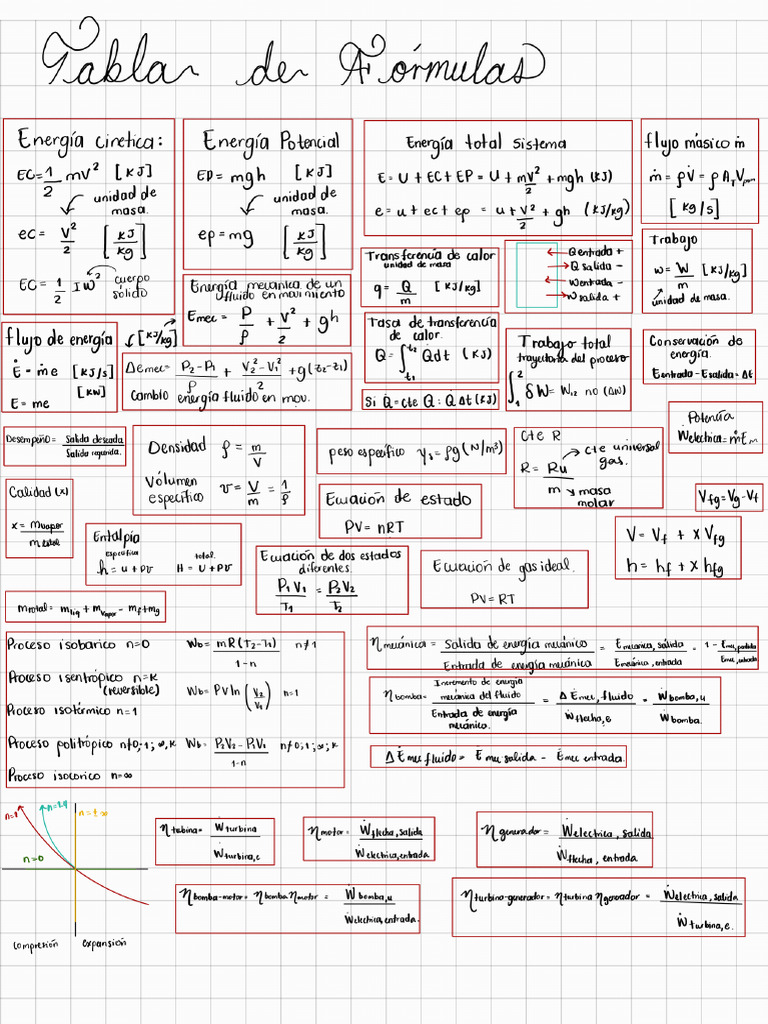 Tablas de Fórmulas
Energía cinetica:
EC = 1/2 mv² [KJ]
unidad de
masa.
ec = v²/2 [KJ/kg]
EC = 1/2 I W² cuerpo
sólido
Energía Potencial
EP = mgh [KJ]
unidad de
masa.
ep = mg [KJ/kg]
Energía total sistema
E = U + EC + EP = U + mv²/2 + mgh (KJ)
e = u + ec + ep = u + v²/2 + gh (KJ/kg)
flujo másico ṁ
ṁ = ρV̇ = ρ A_T V_prom
[kg/s]
Energía mecanica de un
fluido en movimiento
Emec = P/ρ + V²/2 + gh
[KJ/kg]
Transferencia de calor
unidad de masa
q = Q/m [KJ/kg]
Q entrada +
Q salida -
W entrada -
W salida +
Trabajo
w = W/m [KJ/kg]
unidad de masa.
flujo de energía
Ė = ṁe [KJ/s]
[KW]
E = me
Δemec = P₂-P₁/ρ + V₂²-V₁²/2 + g(z₂-z₁)
Cambio energía fluido en mov.
Tasa de transferencia
de calor.
Q = ∫t₁ t₂ Q̇dt (KJ)
Si Q̇=cte Q: Q̇ Δt (KJ)
Trabajo total
trayectoria del proceso
∫₁² δW = W₁₂ no (ΔW)
Conservación de
energía.
Eentrada - Esalida = Δt
Potencia
Ẇelectrica = ṁEm
Desempeño = Salida deseada / Salida requerida.
Densidad ρ = m/V
Vólumen
específico v = V/m = 1/ρ
peso especifico γs = ρg (N/m³)
Cte R
R = Ru/m
cte universal
gas.
masa
molar
Calidad (x)
x = mvapor/mtotal
Vfg = Vg - Vf
Ecuación de estado
PV = nRT
Entalpía
especifica total.
h = u + pv H = U + PV
V = Vf + x Vfg
h = hf + x hfg
Ecuación de dos estados
diferentes.
P₁V₁/T₁ = P₂V₂/T₂
Ecuación de gas ideal.
PV = RT
mtotal = mliq + mvapor - mf + mg
Proceso isobarico n=0 Wb = mR(T₂-T₁)/1-n n≠1
Proceso isentrópico n=K
(reversible) Wb = PV ln (V₂/V₁) n=1
Proceso isotérmico n=1
Proceso politrópico n≠0,1;∞,K Wb = P₂V₂-P₁V₁/1-n n≠0;1;∞;K
Proceso isocorico n=∞
η mecánica = Salida de energía mecánica / Entrada de energía mecánica = Emecanica, salida / Emecánica, entrada = 1 - Emec, perdida / Emec, entrada
η bomba = Incremento de energia mecánica del fluido / Entrada de energía mecánico. = ΔĖmec, fluido / Ẇflecha, e = Ẇbomba, u / Ẇbomba.
ΔĖmec fluido = Ėmec salida - Ėmec entrada.
n=1
n=0
n=±∞
compresión expansión
η turbina = Ẇturbina / Ẇturbina, e
η motor = Ẇflecha, salida / Ẇelectrica, entrada
η generador = Ẇelectrica, salida / Ẇflecha, entrada
η bomba-motor = η bomba η motor = Ẇbomba, u / Ẇelectrica, entrada.
η turbino-generador = η turbina η generador = Ẇelectrica, salida / Ẇturbina, e.